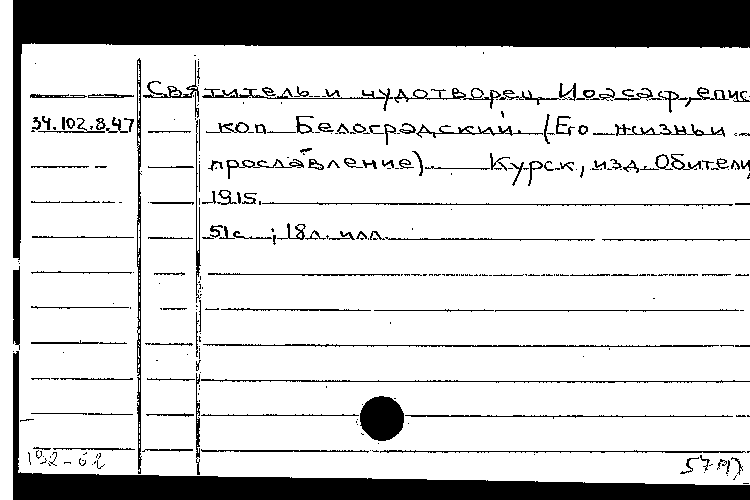 Святитель и чудотворец Иоасаф, епис-
34.102.8.47 коп Белогрэдский. (Его жизнь и
прославление). Курск, изд. Обители,
1915.
51с. ; 18л. илл.
192-62